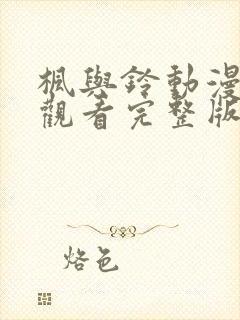 楓與鈴動漫
觀看完整版
烙色